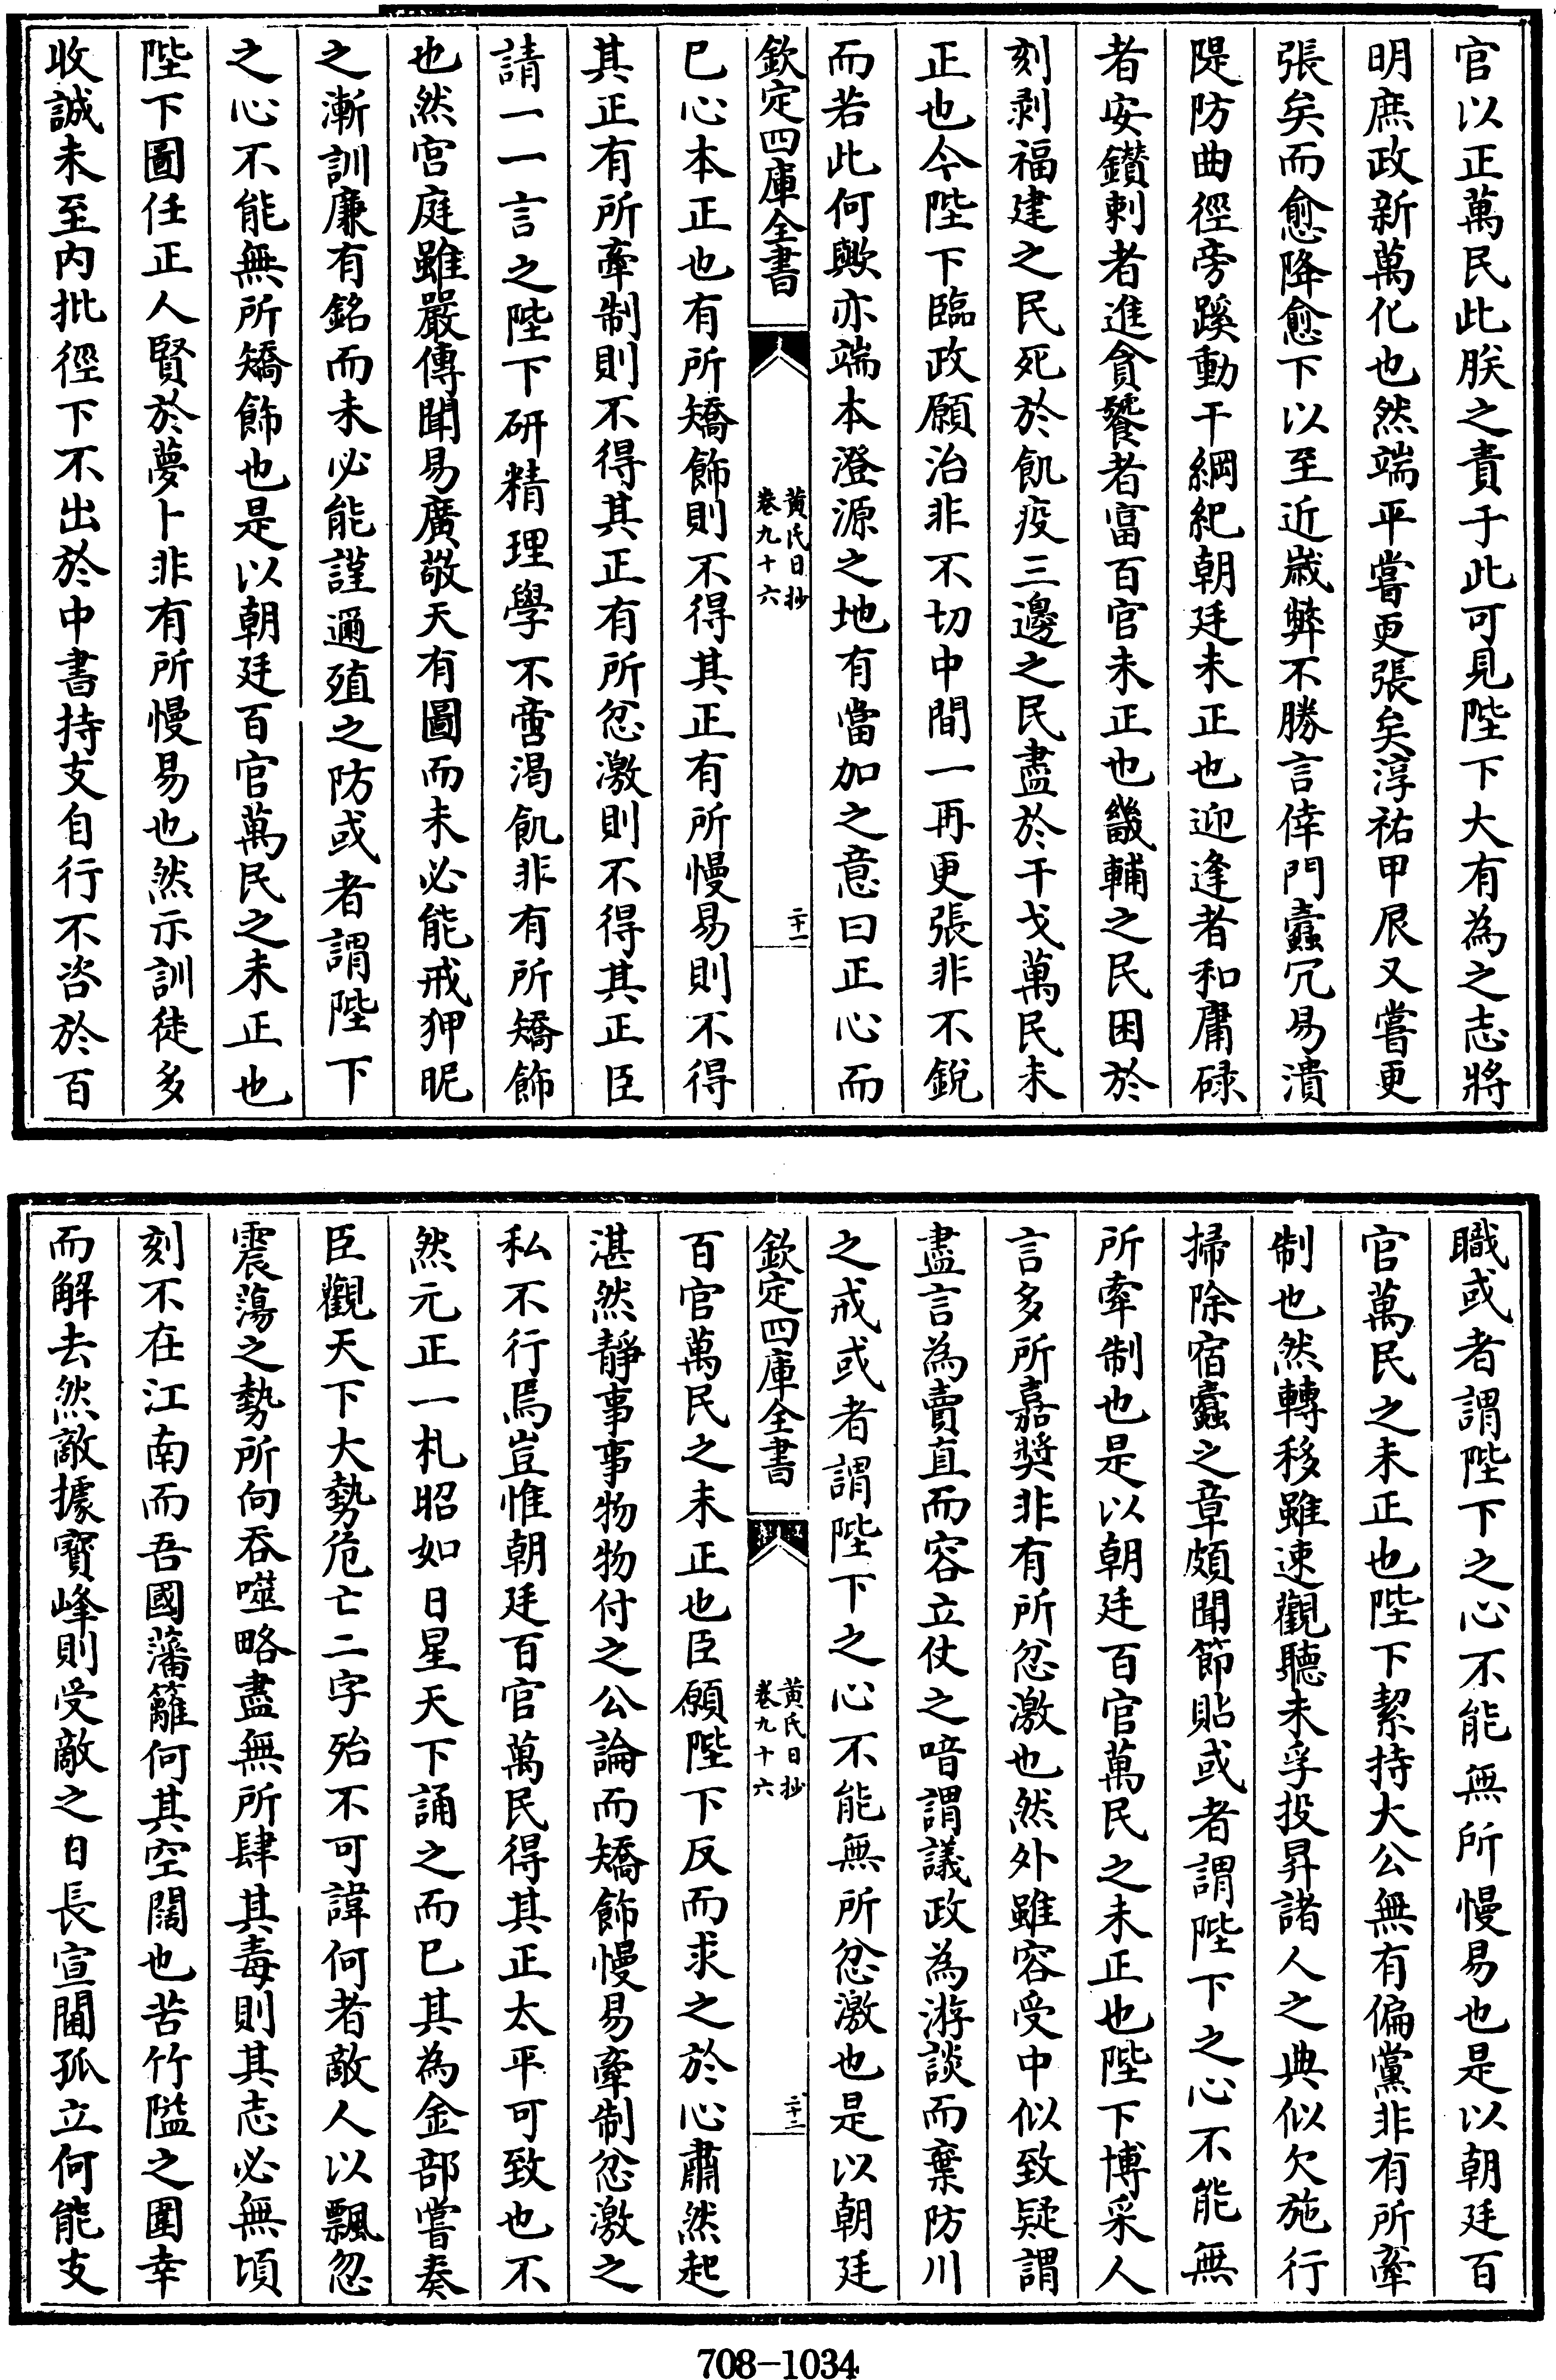 官以正萬民此朕之責于此可見陛下大有為之志將
明庶政新萬化也然端平嘗更張矣淳祐甲辰又嘗更
張矣而愈降愈下以至近嵗弊不勝言倖門蠧冗易潰
隄防曲徑旁蹊動干綱紀朝廷未正也迎逢者和庸碌
者安鑚刺者進貪饕者富百官未正也畿輔之民困於
刻剥福建之民死於飢疫三邊之民盡於干戈萬民未
正也今陛下臨政願治非不切中間一再更張非不銳
而若此何歟亦端本澄源之地有當加之意曰正心而
欽定四庫全書
黄氏日抄
卷九十六
二十一
已心本正也有所矯飾則不得其正有所慢易則不得
其正有所牽制則不得其正有所忿激則不得其正臣
請一一言之陛下研精理學不啻渴飢非有所矯飾
也然宫庭雖嚴傳聞易廣敬天有圖而未必能戒狎昵
之漸訓廉有銘而未必能謹邇殖之防或者謂陛下
之心不能無所矯飾也是以朝廷百官萬民之未正也
陛下圖任正人賢於夢卜非有所慢易也然示訓徒多
收誠未至内批徑下不出於中書持支自行不咨於百
職或者謂陛下之心不能無所慢易也是以朝廷百
官萬民之未正也陛下絜持大公無有偏黨非有所牽
制也然轉移雖速觀聽未孚投昇諸人之典似欠施行
掃除宿蠧之章頗聞節貼或者謂陛下之心不能無
所牽制也是以朝廷百官萬民之未正也陛下博采人
言多所嘉奬非有所忿激也然外雖容受中似致疑謂
盡言為賣直而容立仗之喑謂議政為游談而棄防川
之戒或者謂陛下之心不能無所忿激也是以朝廷
欽定四庫全書
黄氏日抄
卷九十六
二十二
百官萬民之未正也臣願陛下反而求之於心肅然起
湛然靜事事物物付之公論而矯飾慢易牽制忿激之
私不行焉豈惟朝廷百官萬民得其正太平可致也不
然元正一札昭如日星天下誦之而已其為金部嘗奏
臣觀天下大勢危亡二字殆不可諱何者敵人以飄忽
震蕩之勢所向吞噬略盡無所肆其毒則其志必無頃
刻不在江南而吾國藩籬何其空闊也苦竹隘之圍幸
而解去然敵據寶峰則受敵之日長宣閫孤立何能支
708-1034